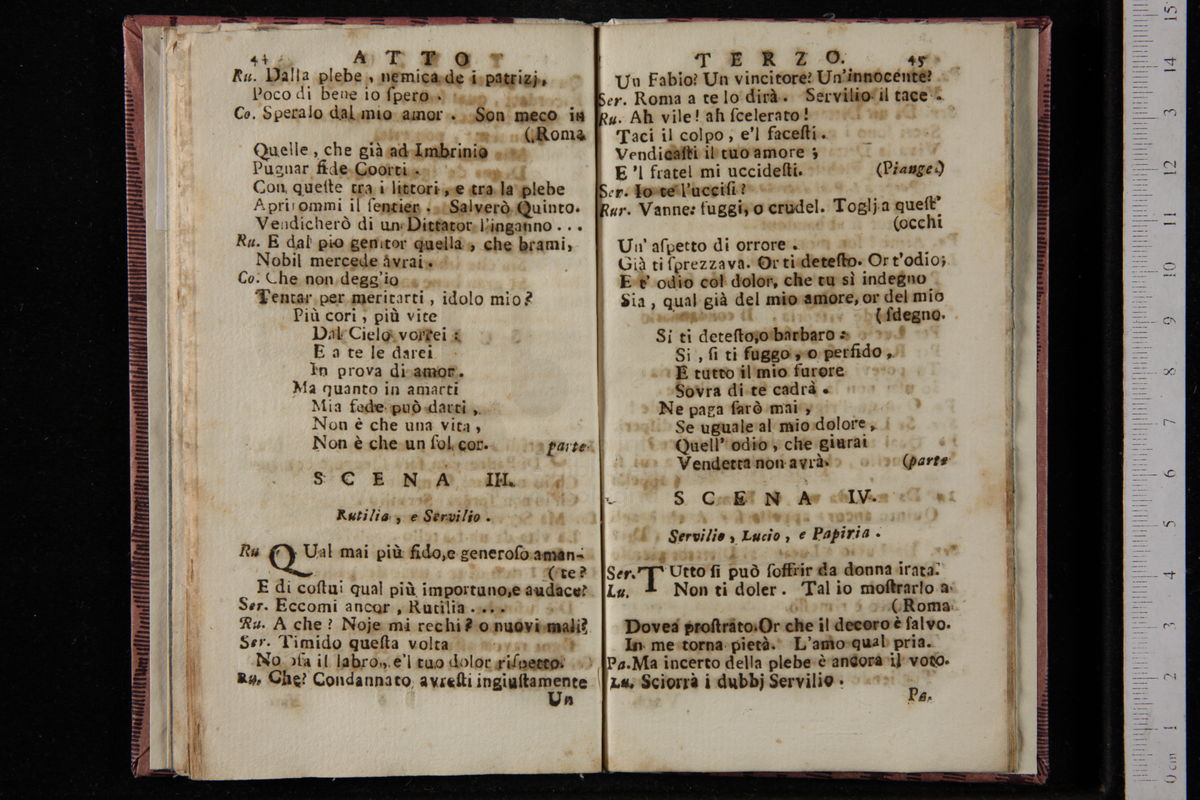 44 ATTO
Ru. Dalla plebe, nemica de i patrizj,
Poco di bene io ſpero.
Co. Speralo dal mio amor. Son meco in
(Roma
Quelle, che già ad Imbrinio
Pugnar fide Coorti.
Con queſte tra i littori, e tra la plebe
Aprirommi il ſentier. Salverò Quinto.
Vendicherò di un Dittator l'inganno...
Ru. E dal pio genitor quella, che brami,
Nobil mercede avrai.
Co. Che non degg'io
Tentar per meritarti, idolo mio?
Più cori, più vite
Dal Cielo vorrei:
E a te le darei
In prova di amor.
Ma quanto in amarti
Mia fede può darti,
Non è che una vita,
Non è che un ſol cor. parte
SCENA III.
Rutilia, e Servilio.
Ru QUal mai più fido, e generoſo aman-
(te?
E di coſtui qual più importuno, e audace?
Ser. Eccomi ancor, Rutilia....
Ru. A che? Noje mi rechi? o nuovi mali?
Ser. Timido queſta volta
No oſa il labro, e'l tuo dolor riſpetto.
Ru. Che? Condannato avreſti ingiuſtamente
Un
TERZO. 45
Un Fabio? Un vincitore? Un'innocente?
Ser. Roma a te lo dirà. Servilio il tace.
Ru. Ah vile! ah ſcelerato!
Taci il colpo, e'l faceſti.
Vendicaſti il tuo amore;
E 'l fratel mi uccideſti. (Piange.)
Ser. Io te l'ucciſi?
Rur. Vanne: fuggi, o crudel. Toglj a queſt'
(occhi
Un' aſpetto di orrore.
Già ti ſprezzava. Or ti deteſto. Or t'odio;
E t' odio col dolor, che tu sì indegno
Sia, qual già del mio amore, or del mio
(ſdegno.
Si ti deteſto, o barbaro:
Si, ſi ti fuggo, o perfido,
E tutto il mio furore
Sovra di te cadrà.
Ne paga ſarò mai,
Se uguale al mio dolore,
Quell' odio, che giurai
Vendetta non avrà. (parte
SCENA IV.
Servilio, Lucio, e Papiria.
Ser. TUtto ſi può ſoffrir da donna irata.
Lu. Non ti doler. Tal io moſtrarlo a
(Roma
Dovea proſtrato. Or che il decoro è ſalvo.
In me torna pietà. L'amo qual pria.
Pa. Ma incerto della plebe è ancora il voto.
Lu. Sciorrà i dubbj Servilio.
Pa.
0 cm 1 2 3 4 5 6 7 8 9 10 11 12 13 14 15